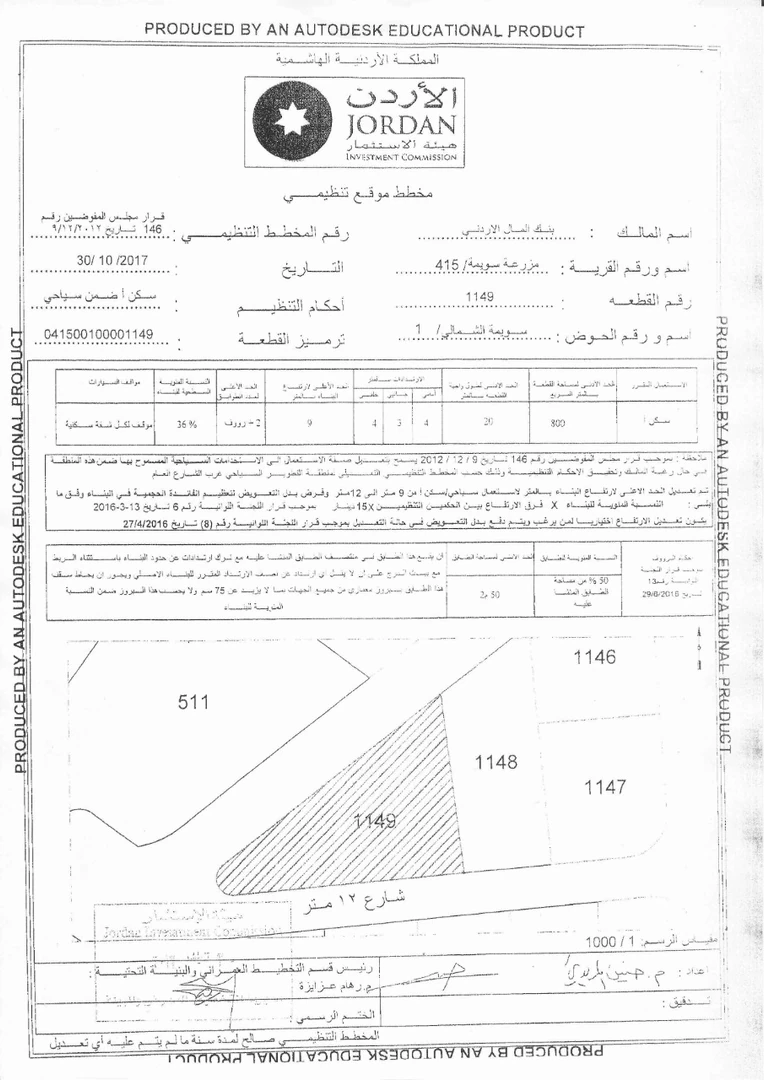 PRODUCED BY AN AUTODESK EDUCATIONAL PRODUCT
المملكة الأردنية الهاشمية
الأردن
JORDAN
هيئة الاستثمار
INVESTMENT COMMISSION
مخطط موقع تنظيمي
اسم المالك : بنك المال الاردني
رقم المخطط التنظيمي : قرار مجلس المفوضين رقم 146 تاريخ ٩/١٢/٢٠١٢
اسم ورقم القرية : مزرعة سويمة/ 415
التاريخ : 30/ 10 /2017
رقم القطعه : 1149
أحكام التنظيم : سكن أ ضمن سياحي
اسم و رقم الحوض : سويمة الشمالي/ 1
ترميز القطعة : 041500100001149
الاستعمال المقرر
الحد الادنى لمساحة القطعة بالمتر المربع
الحد الادنى لطول واجهة القطعة بالمتر
الارتدادات بالمتر
أمامي
جانبي
خلفي
الحد الأعلى لارتفاع البناء بالمتر
الحد الاعلى لعدد الطوابق
النسبة المئوية السطحية للبناء
مواقف السيارات
سكن أ
800
20
4
3
4
9
2 + رووف
36 %
موقف لكل شقة سكنية
ملاحظة : بموجب قرار مجلس المفوضين رقم 146 تاريخ 9 / 12 / 2012 يسمح بتعديل صفة الاستعمال الى الاستخدامات السياحية المسموح بها ضمن هذه المنطقة
في حال رغبة المالك وتحقيق الاحكام التنظيمية وذلك حسب المخطط التنظيمي التفصيلي لمنطقة التطوير السياحي غرب الشارع العام
تم تعديل الحد الاعلى لارتفاع البناء بالمتر لاستعمال سياحي/سكن أ من 9 متر الى 12متر وفرض بدل التعويض تنظيم الفائدة الحجمية في البناء وفق ما
يلي : النسبة المئوية للبناء X فرق الارتفاع بين الحكمين التنظيميين x15 دينار بموجب قرار اللجنة اللوائية رقم 6 تاريخ 13-3-2016
يكون تعديل الارتفاع اختياريا لمن يرغب ويتم دفع بدل التعويض في حالة التعديل بموجب قرار اللجنة اللوائية رقم (8) تاريخ 27/4/2016
حكم الرووف بموجب قرار اللجنة اللوائية رقم13 تاريخ 29/6/2016
النسبة المئوية للطابق
50 % من مساحة الطابق المنشأ عليه
الحد الادنى لمساحة الطابق
50 م2
ان يقع هذا الطابق في منتصف الطابق المنشأ عليه مع ترك ارتدادات عن حدود البناء باستثناء الربط
مع بيت الدرج على ان لا يقل اي ارتداد عن نصف الارتداد المقرر للبناء الاصلي ويجوز ان يحاط سقف
هذا الطابق ببروز معماري من جميع الجهات بما لا يزيد عن 75 سم ولا يحسب هذا البروز ضمن النسبة
المئوية للبناء
511
1146
1148
1147
1149
شارع ١٢ متر
هيئة الاستثمار
Jordan Investment Commission
مقياس الرسم: 1 / 1000
اعداد :
رئيس قسم التخطيط العمراني والبنية التحتية :
م.رهام عزايزة
تدقيق :
الختم الرسمي :
المخطط التنظيمي صالح لمدة سنة ما لم يتم عليه أي تعديل
PRODUCED BY AN AUTODESK EDUCATIONAL PRODUCT
PRODUCED BY AN AUTODESK EDUCATIONAL PRODUCT
PRODUCED BY AN AUTODESK EDUCATIONAL PRODUCT